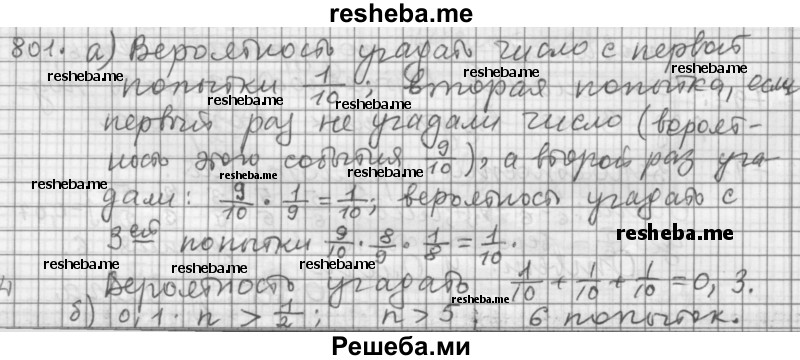 resheba.me
801. а) Вероятность угадать число с первой
resheba.me resheba.me resheba.me
попытки 1/10; вторая попытка, если
resheba.me resheba.me resheba.me
первый раз не угадали число (вероят-
ность этого события 9/10), а второй раз уга-
resheba.me resheba.me resheba.me
дали: 9/10 · 1/9 = 1/10; вероятность угадать с
3ей попытки 9/10 · 8/9 · 1/8 = 1/10.
resheba.me
resheba.me resheba.me resheba.me
Вероятность угадать 1/10 + 1/10 + 1/10 = 0,3.
resheba.me
б) 0,1 · n > 1/2; n > 5; 6 попыток.
Решеба.ми